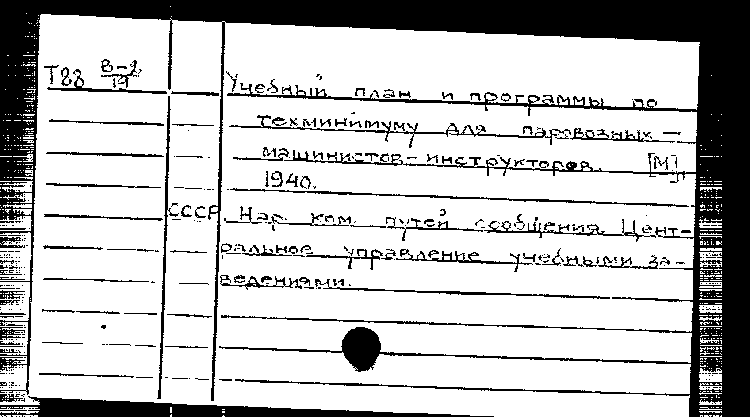 Т88 В-2/19
Учебный план и программы по
техминимуму для паровозных —
машинистов-инструкторов. [М],
1940.
СССР. Нар. ком. путей сообщения. Цент-
ральное управление учебными за-
ведениями.